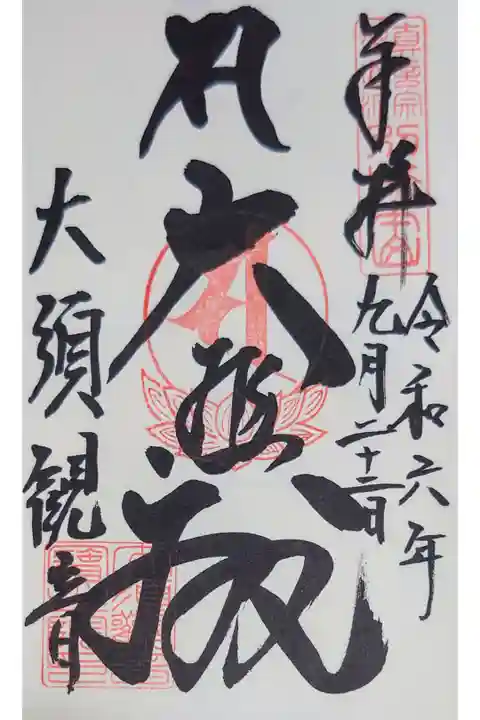 奉拝
令和六年
九月二十二日
大悲殿
大須観音